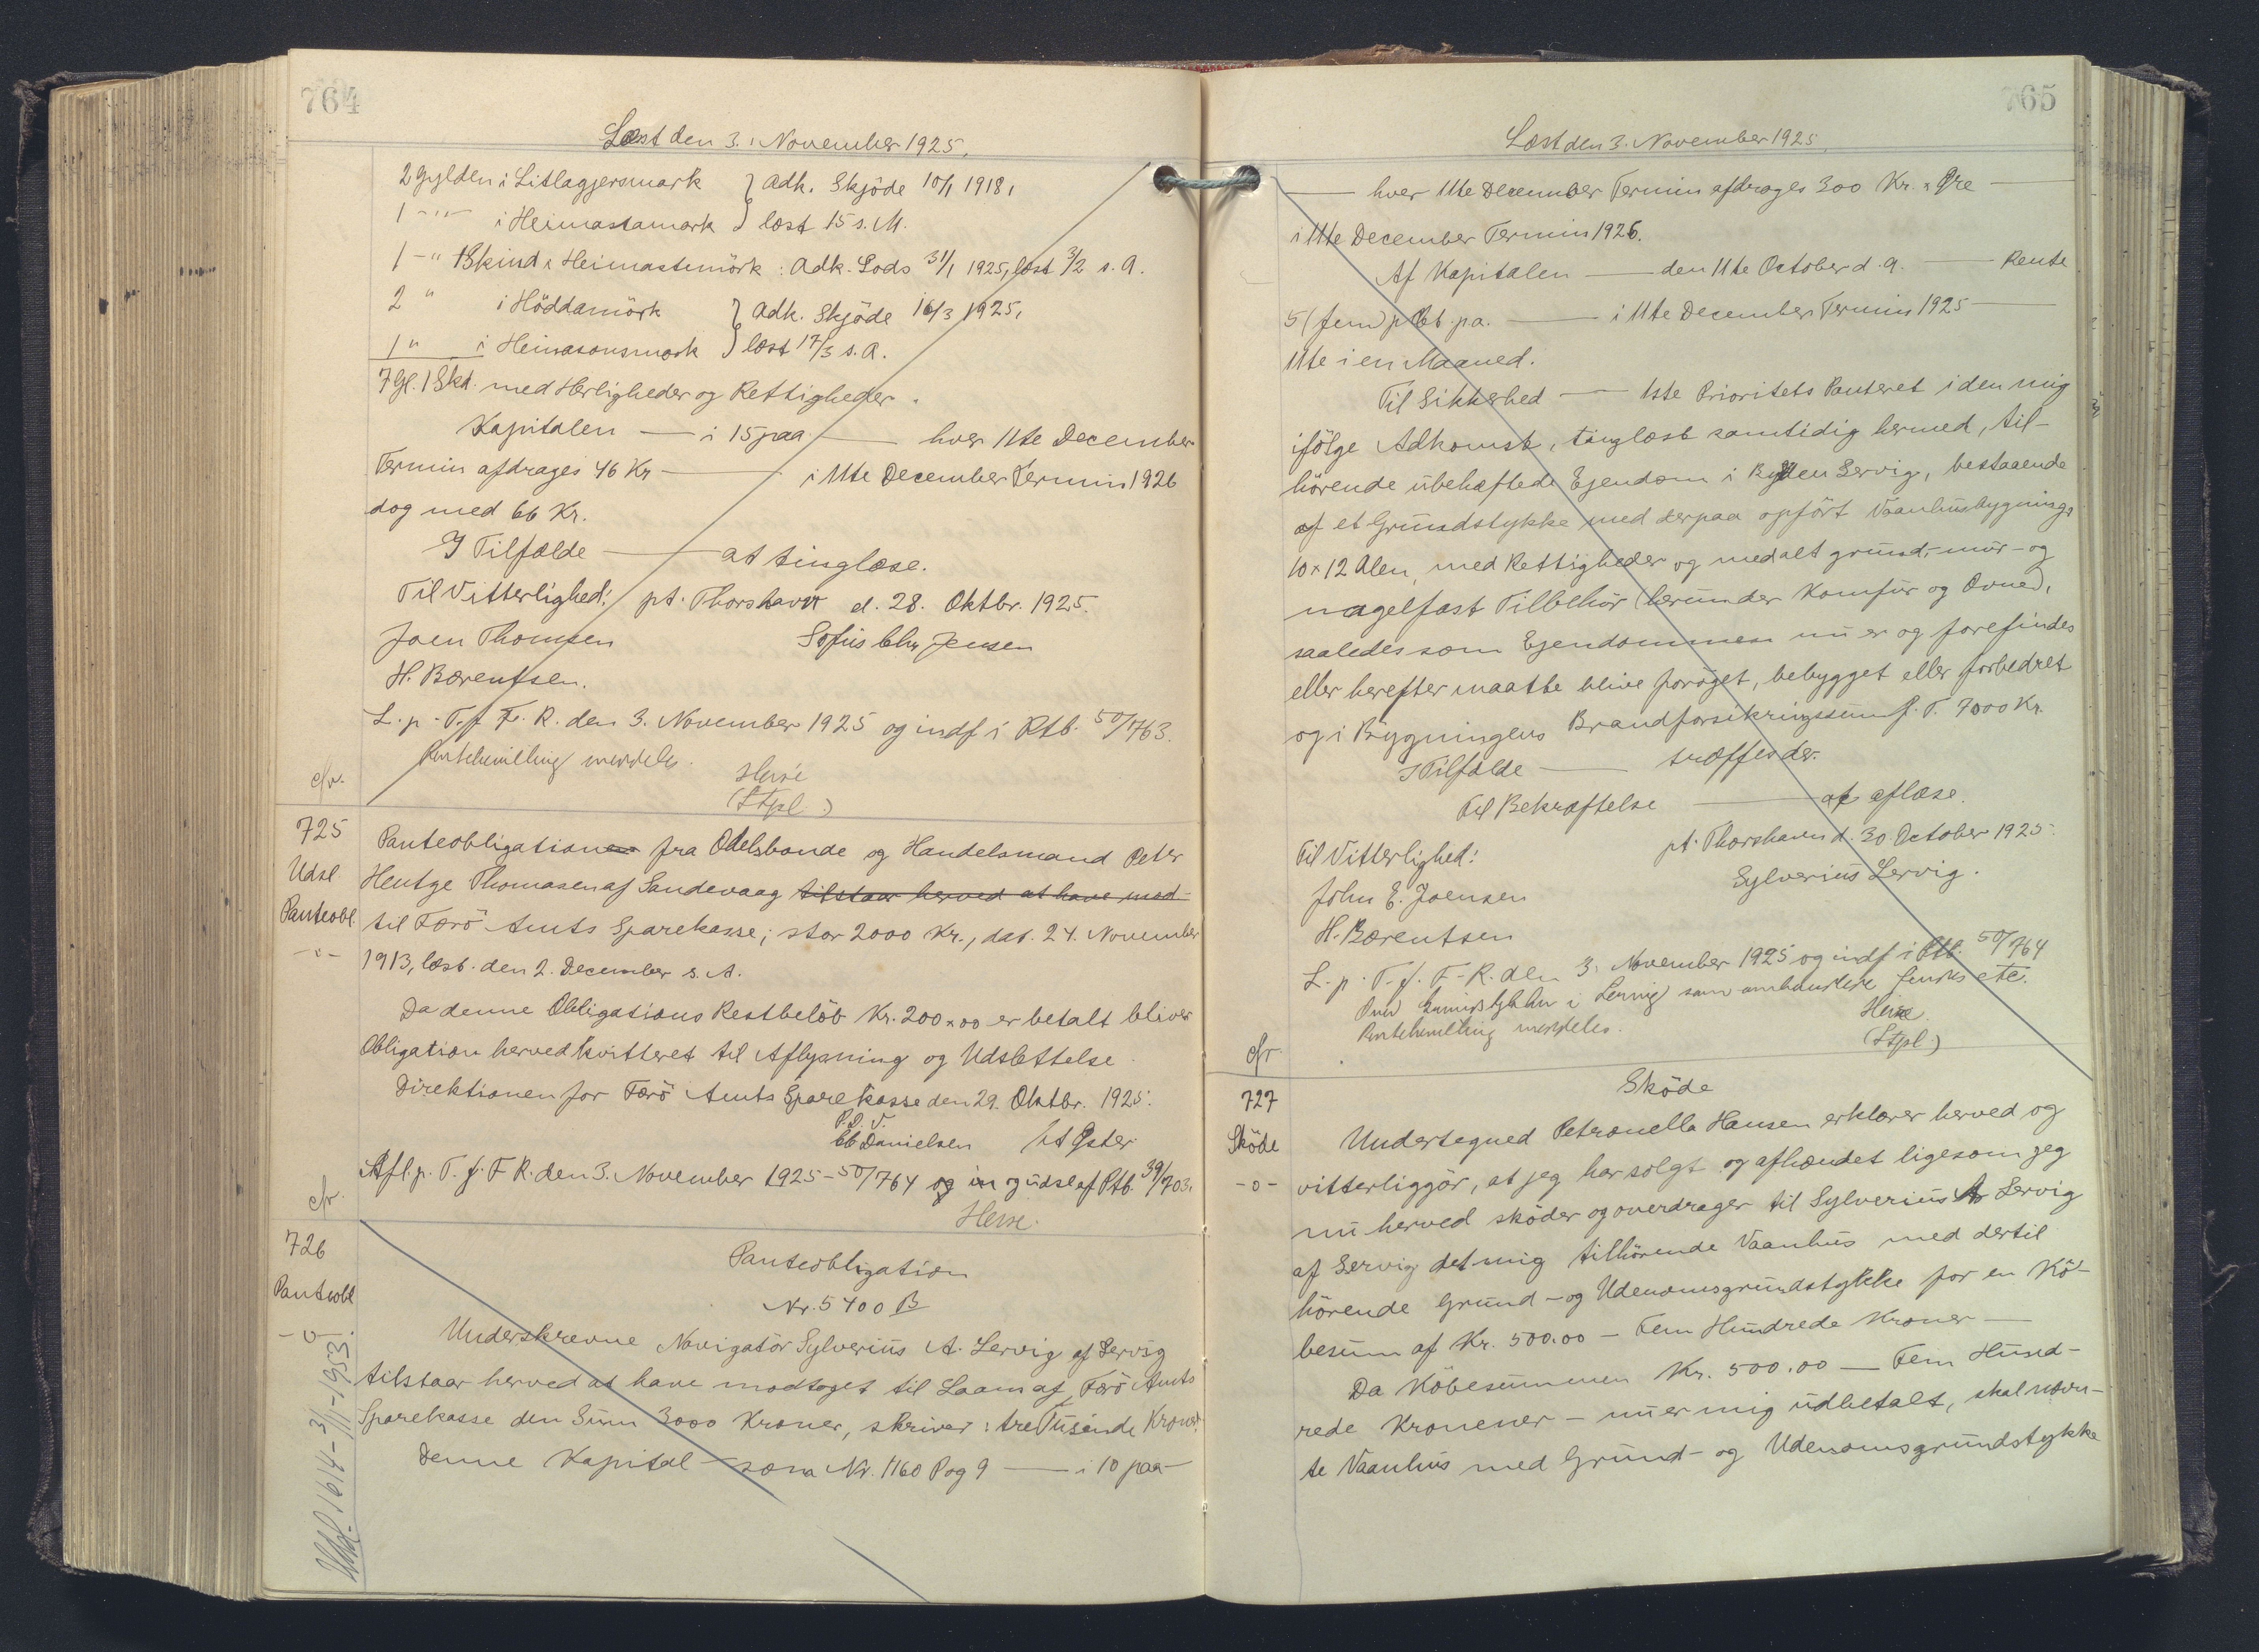 764
Læst den 3. November 1925.
2 Gylden i Litlaggersmark } Adk. Skjöde 10/1 1918,
1 -"- i Heimastamark } læst 15 s. M.
1 -" 1 Skind i Heimastemörk : Adk. Lods 31/1 1925, læst 3/2 s. A.
2 " i Höddamörk } Adk. Skjöde 16/3 1925,
1 " i Heimasonsmork } læst 17/3 s. A.
7 Gl. 1 Skd. med Herligheder og Rettigheder.
Kapitalen — i 15 paa — hver 11te December
Termin afdrages 46 Kr — i 11te December Termin 1926
dog med 66 Kr.
I Tilfælde — at tinglæse.
Til Vitterlighed: pt. Thorshavn d. 28. Oktbr. 1925.
Joen Thomsen Sofus Chr. Jensen
H. Bærentsen.
L. p. T. f. F. R. den 3. November 1925 og indf i Ptb. 50/763.
Rentebevilling meddeles.
cfr. Heise
(Stpl.)
725
Udsl.
Panteobl.
-"-
Panteobligationen fra Odelsbonde og Handelsmand Peter
Hentze Thomasen af Sandevaag tilstaar herved at have mod-
til Færö Amts Sparekasse, stor 2000 Kr., dat. 24. November
1913, læst. den 2. December s. A.
Da denne Obligations Restbelöb Kr. 200 x 00 er betalt bliver
Obligation herved kvitteret til Aflysning og Udslettelse.
Direktionen for Færö Amts Sparekasse den 29. Oktbr. 1925.
P. D. V.
C C Danielsen
Afl. p. T. f. F R. den 3. November 1925 - 50/764 og in og udsl af Ptb. 39/703.
cfr. Heise.
726
Panteobl
-o-
Udsl. 1614 - 3/11 - 1953.
Panteobligation
Nr. 5400 B
Underskrevne Navigatör Sylverius A. Lervig af Lervig
tilstaar herved at have modtaget til Laan af Færö Amts
Sparekasse den Sum 3000 Kroner, skriver : tre Tusinde Kroner.
Denne Kapital — som Nr. 1160 P og 9 — i 10 paa —
765
Læst den 3. November 1925.
— hver 11te December Termin afdrages 300 Kr. x Øre —
i 11te December Termin 1926.
Af Kapitalen — den 11te October d. A. — Rente
5 (fem) p Ct. pa. — i 11te December Termin 1925 —
11te i en Maaned.
Til Sikkerhed — 1ste Prioritets Panteret i den mig
ifölge Adkomst, tinglæst samtidig hermed, til-
hörende ubehæftede Ejendom i Bygden Lervig, bestaaende
af et Grundstykke med derpaa opfört Vaanhusbygnings
10 x 12 Alen, med Rettigheder og med alt grund- mur- og
nagelfast Tilbehör (herunder Komfur og Ovne),
saaledes som Ejendommen nu er og forefindes
eller herefter maatte blive foröget, bebygget eller forbedret
og i Bygningens Brandforsikringssum p. T. 7000 Kr.
I Tilfælde — træffender.
Til Bekræftelse — at aflæse.
pt. Thorshavn d. 30 October 1925.
Til Vitterlighed: Sylverius Lervig.
John E. Joensen
H. Bærentsen
L. p. T. f. F - R. den 3. November 1925 og indf i Ptb. 50/764
i Lervig som omhandlede etc.
Rentebevilling meddeles. Heise.
cfr. (Stpl.)
727
Sköde
-o-
Sköde
Undertegned Petronella Hansen erklærer herved og
vitterliggör, at jeg har solgt og afhændet ligesom jeg
nu herved sköder og overdrager til Sylverius A Lervig
af Lervig det mig tilhörende Vaanhus med dertil
hörende Grund- og Udenomsgrundstykke for en Kö-
besum af Kr. 500.00 — Fem Hundrede Kroner —
Da Köbesummen Kr. 500.00 — Fem Hund-
rede Kronener — nu er mig udbetalt, skal nævn-
te Vaanhus med Grund- og Udenomsgrundstykke